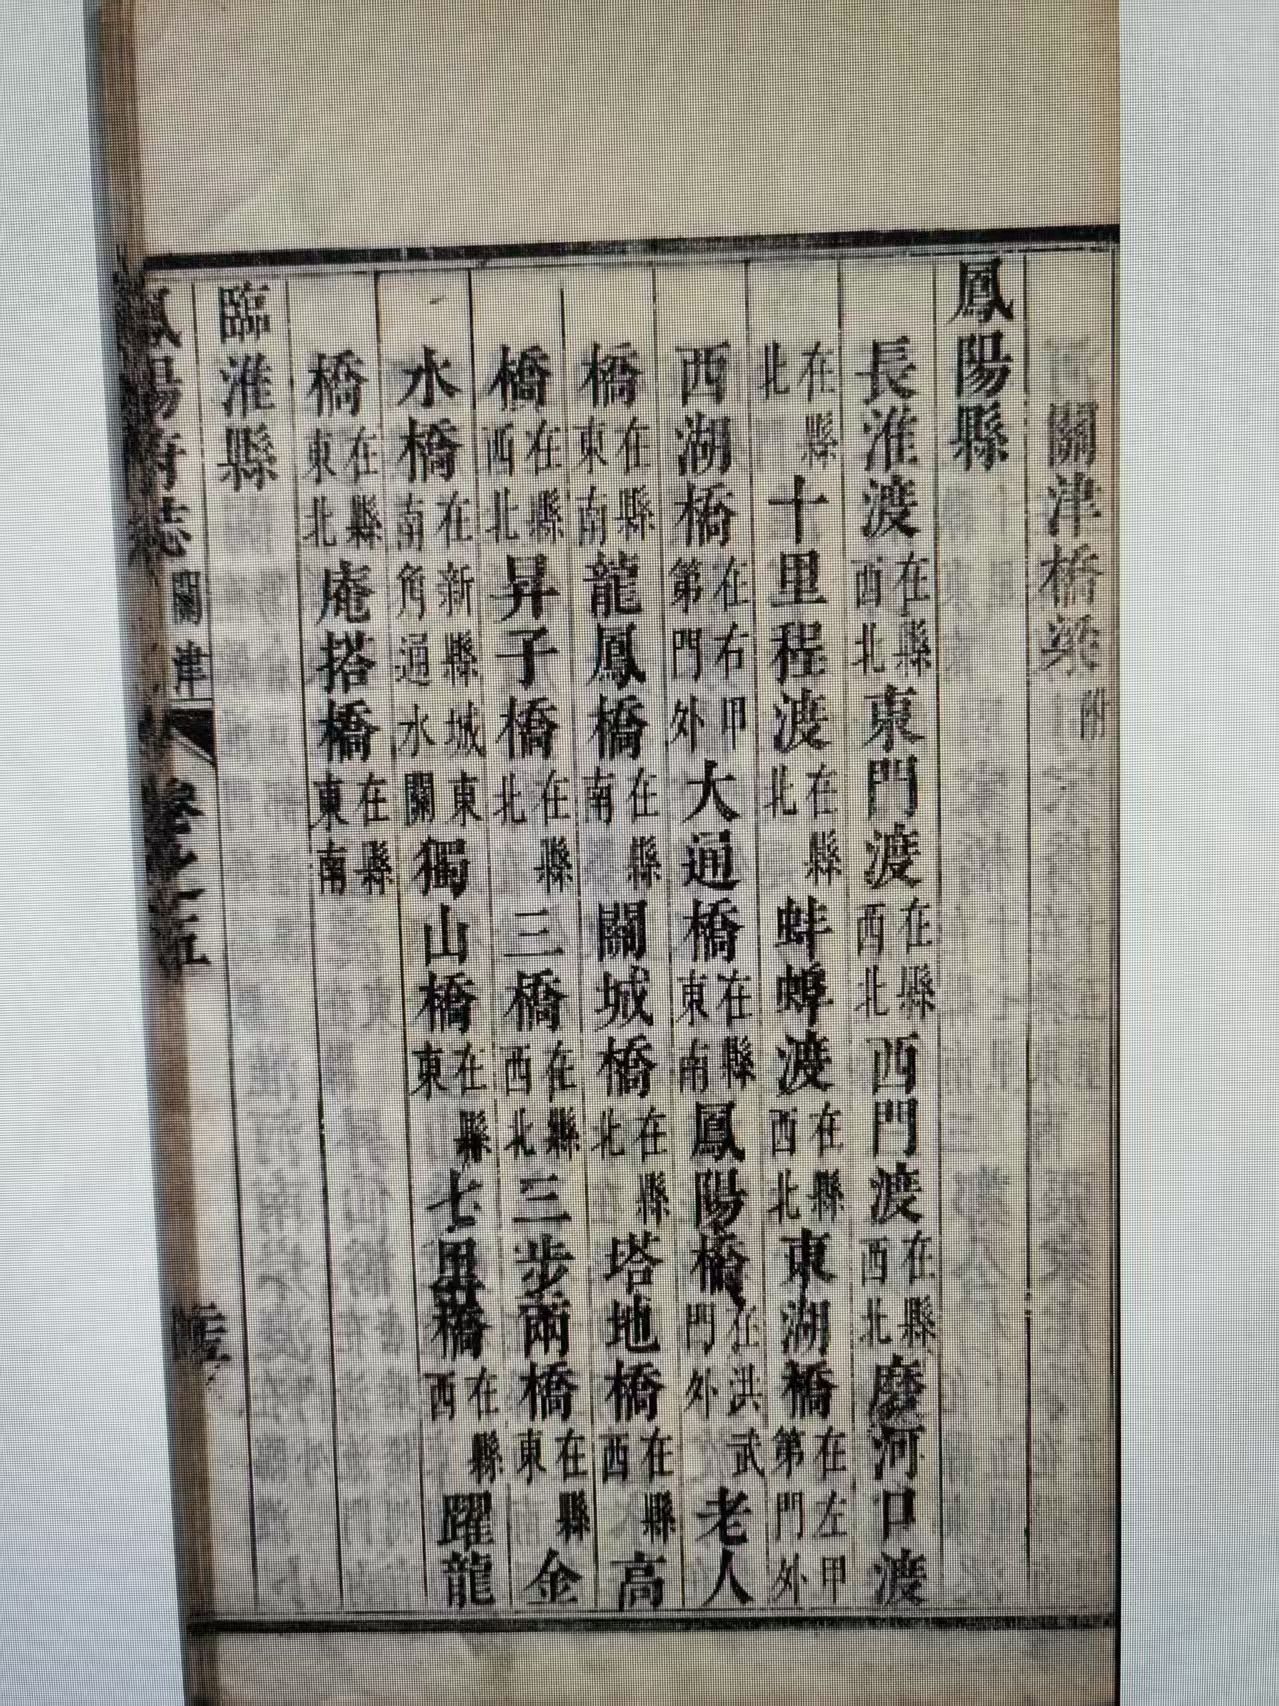 關津橋梁附
鳳陽縣
長淮渡在縣西北東門渡在縣西北西門渡在縣西北磨河口渡
在縣北十里程渡在縣北蚌蜯渡在縣西北東湖橋在左甲第門外
西湖橋在右甲第門外大通橋在縣東南鳳陽橋在洪武門外老人
橋在縣東南龍鳳橋在縣南關城橋在縣北塔地橋在縣西高
橋在縣西北昇子橋在縣北三橋在縣西北三步兩橋在縣東金
水橋在新縣城東南角通水關獨山橋在縣東七里橋在縣西躍龍
橋在縣東北庵搭橋在縣東南
臨淮縣
鳳陽府志 關津 卷之十五